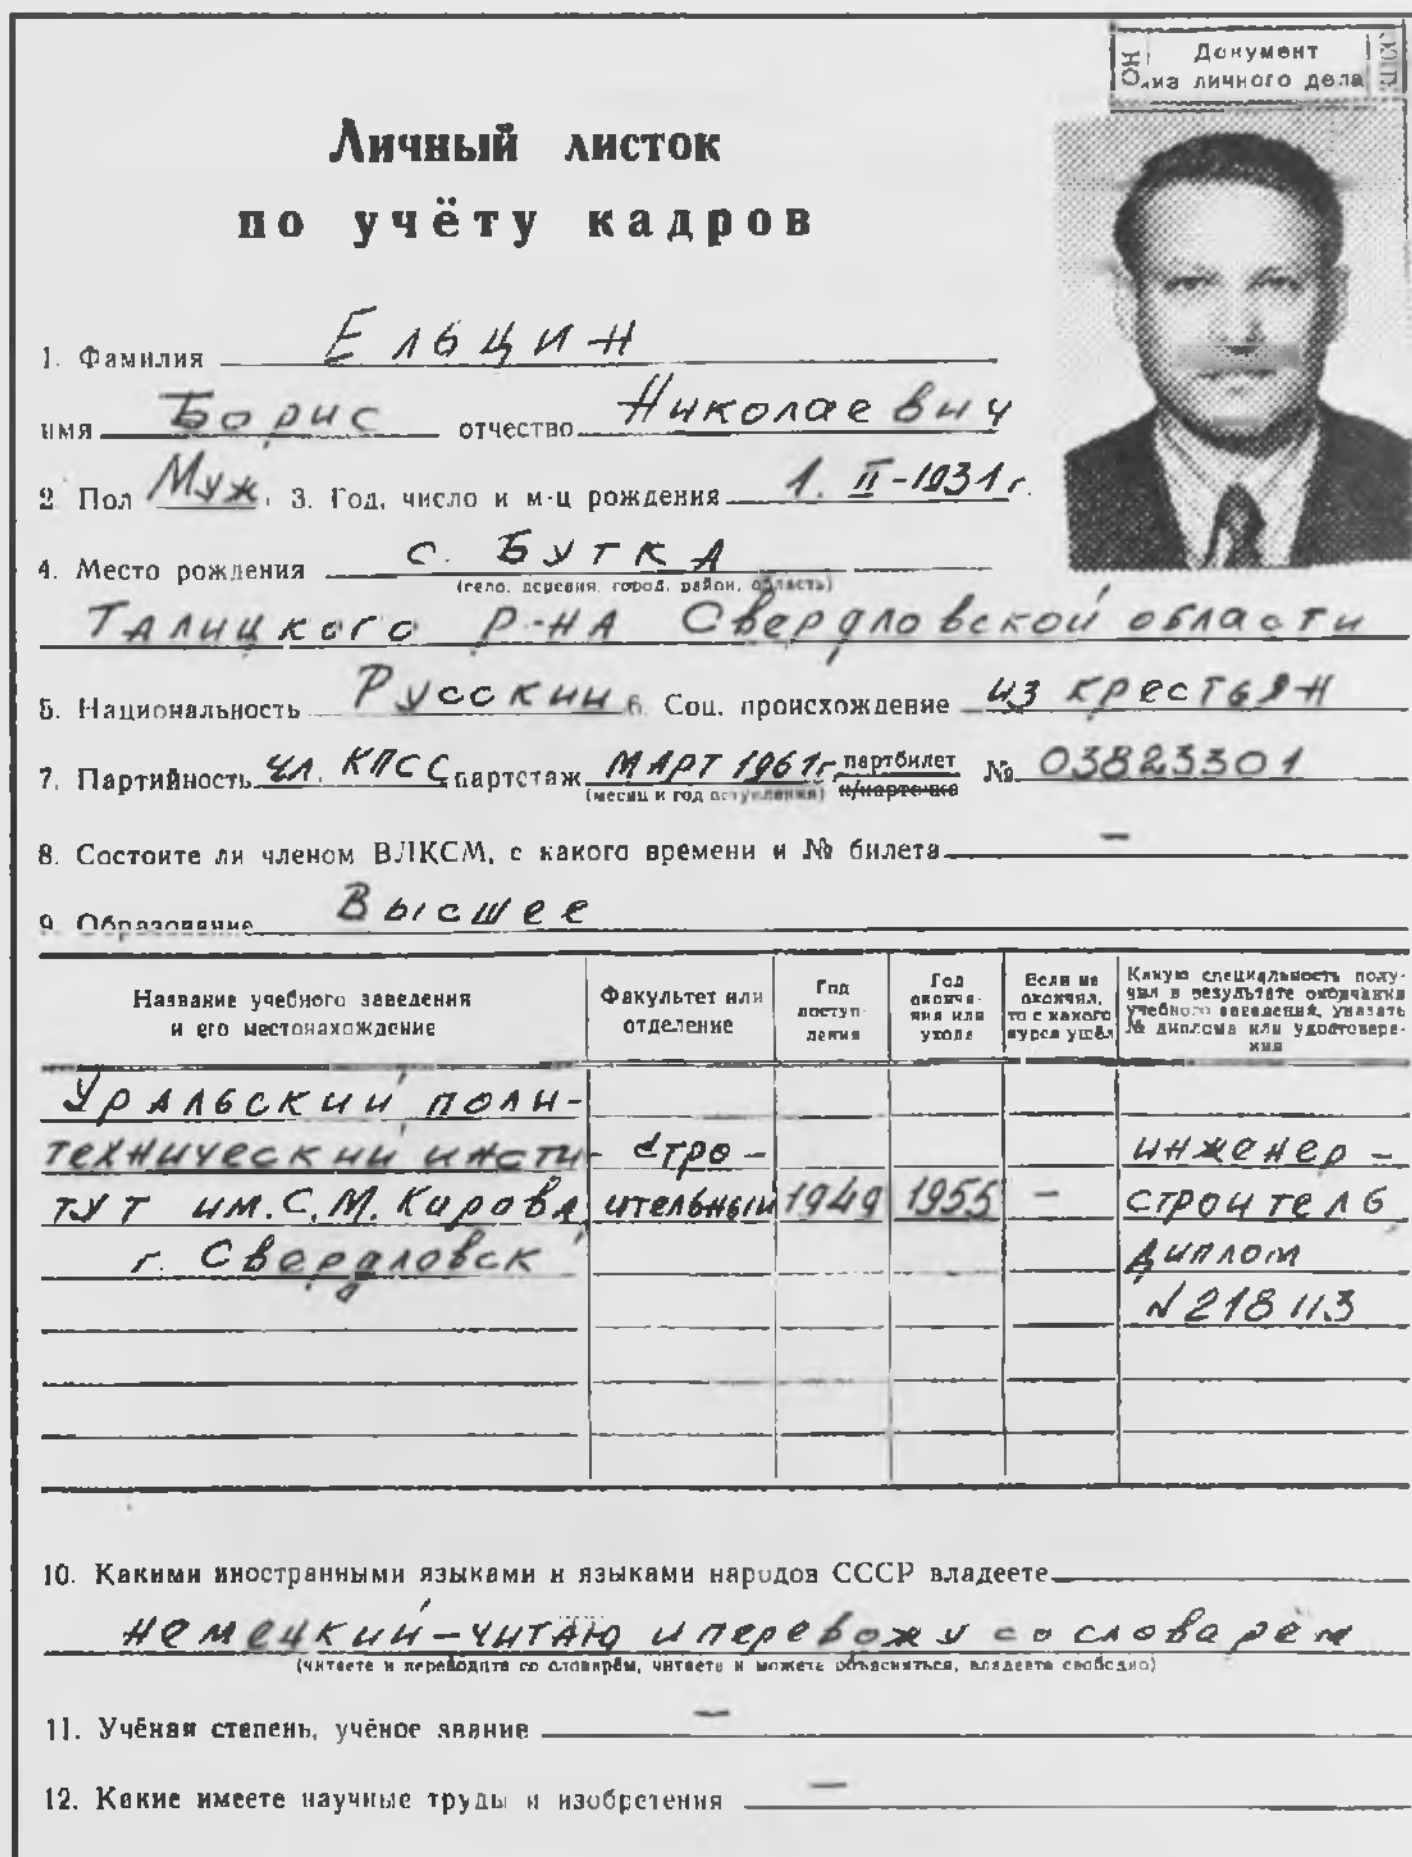 Документ
из личного дела
Личный листок
по учёту кадров
1. Фамилия Ельцин
имя Борис отчество Николаевич
2 Пол Муж. 3. Год, число и м-ц рождения 1. II-1931 г.
4. Место рождения с. Бутка
(село, деревня, город, район, область)
Талицкого р-на Свердловской области
5. Национальность Русский 6. Соц. происхождение из крестьян
7. Партийность чл. КПСС партстаж март 1961 г. партбилет № 03823301
(месяц и год вступления) к/карточка
8. Состоите ли членом ВЛКСМ, с какого времени и № билета —
9. Образование Высшее
Название учебного заведения
и его местонахождение
Факультет или
отделение
Год
поступ-
ления
Год
оконча-
ния или
ухода
Если не
окончил,
то с какого
курса ушёл
Какую специальность полу-
чил в результате окончания
учебного заведения, указать
№ диплома или удостовере-
ния
Уральский поли-
технический инсти-
тут им. С. М. Кирова,
г. Свердловск
стро-
ительный
1949
1955
—
инженер-
строитель
диплом
№ 218113
10. Какими иностранными языками и языками народов СССР владеете
немецкий – читаю и перевожу со словарём
(читаете и переводите со словарём, читаете и можете объясняться, владеете свободно)
11. Учёная степень, учёное звание —
12. Какие имеете научные труды и изобретения —